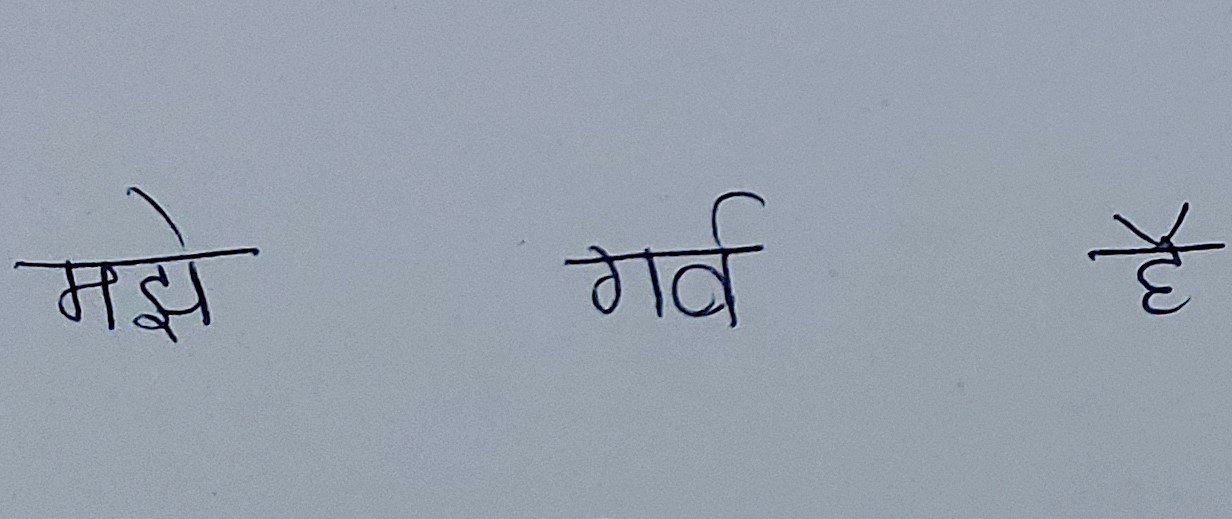 मझे गर्व है